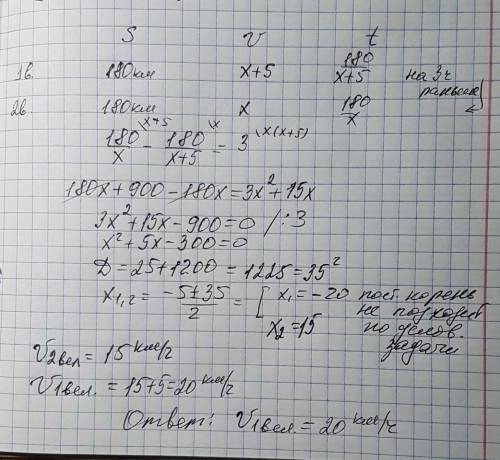 S V t
1в. 180км x+5 180/(x+5) на 3ч раньше
2в. 180км x 180/x
180/x \x+5 - 180/(x+5) \x = 3 \x(x+5)
180x + 900 - 180x = 3x² + 15x
3x² + 15x - 900 = 0 /:3
x² + 5x - 300 = 0
D = 25 + 1200 = 1225 = 35²
x₁,₂ = (-5±35)/2 = [ x₁ = -20 пост. корень
не подходит
x₂ = 15 по услов.
задачи
V₂вел = 15 км/ч
V₁вел. = 15+5=20 км/ч
Ответ: V₁вел. = 20 км/ч